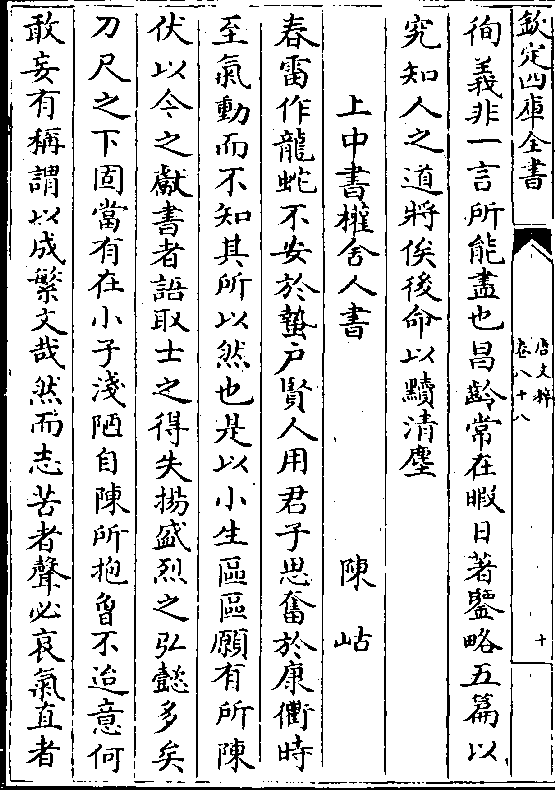 欽定四庫全書
唐文粹
卷八十八
十
徇義非一言所能盡也昌齡常在暇日著鑒略五篇以
究知人之道將俟後命以黷清塵
上中書權舍人書 陳岵
春雷作龍蛇不安於蟄户賢人用君子思奮於康衢時
至氣動而不知其所以然也是以小生區區願有所陳
伏以今之獻書者語取士之得失揚盛烈之弘懿多矣
刀尺之下固當有在小子淺陋自陳所抱曾不迨意何
敢妄有稱謂以成繁文哉然而志苦者聲必哀氣直者